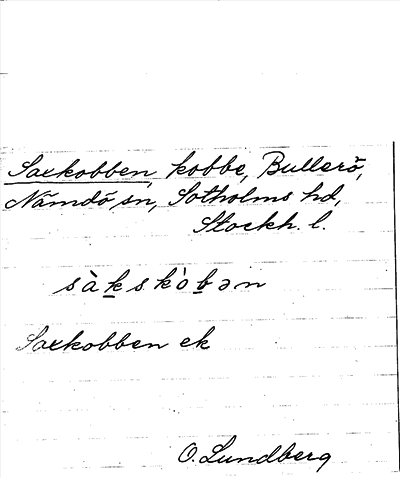 Saxkobben, kobbe, Bullerö,
Nämdö sn, Sotholms hd,
Stockh. l.
sàk̲skòb̲ən
Saxkobben ek
O. Lundberg